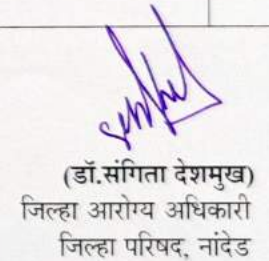 (डॉ.संगिता देशमुख)
जिल्हा आरोग्य अधिकारी
जिल्हा परिषद, नांदेड